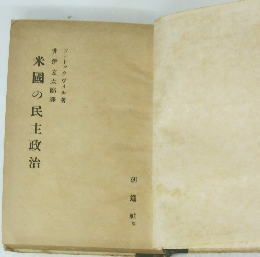 トックヴィル著
井伊玄太郎譯
米國の民主政治
研進社